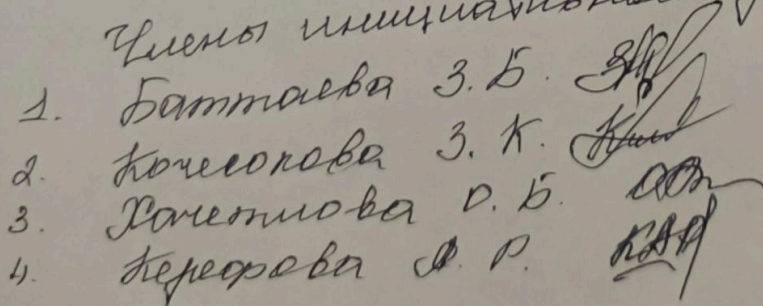 Члены инициативной
1. Баттаева З. Б.
2. Кочесокова З. К.
3. Хачетлова О. Б.
4. Керефова А. Р.